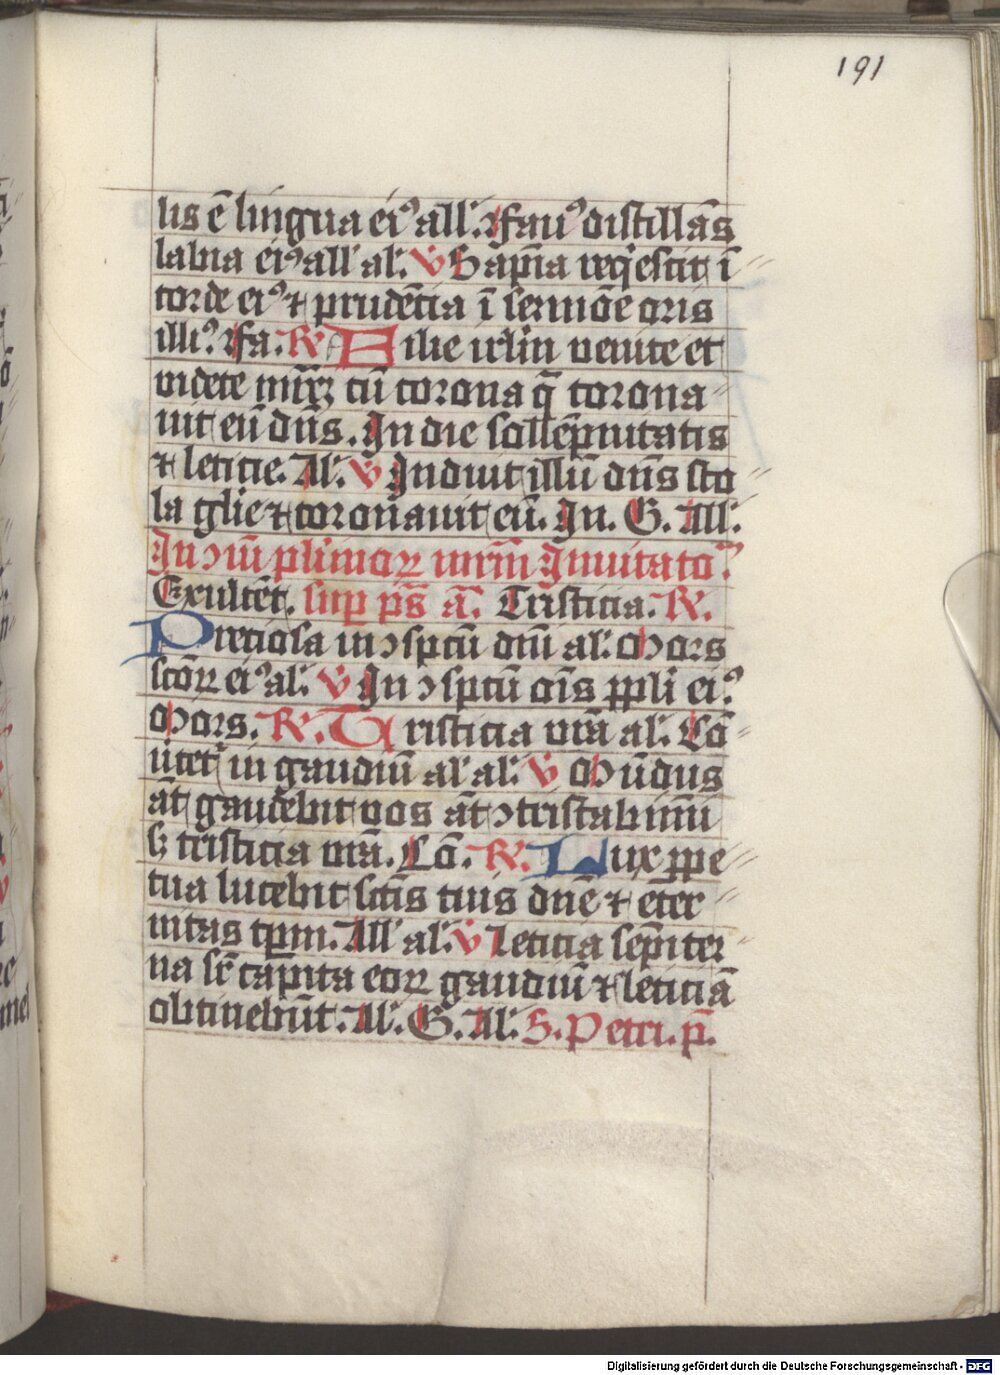 191
lis ē lingua ei⁹ all'. Fau⁹ distillās
labia ei⁹ all' al'. V̄ Sapīa reqͥescit ī
corde ei⁹ ⁊ prudētia ī sermōe oris
illi⁹. Fa. R̸ Filie irl̄m venite et
videte mr̄ꝝ cū corona q̄ corona
uit eū dn̄s. In die sollēpnitatis
⁊ leticie. All'. V̄ Induit illū dn̄s sto
la gl̄ie ⁊ coronauit eū. In. G. All'.
In ↄm̄ plimoꝝ mr̄m Inuitato⁹.
Exultēt. sup ps̄ a. Tristicia. R̸.
Preciosa in ↄspctū dn̄i al'. Mors
sc̄oꝝ ei⁹ al'. V̄ In ↄspctū oīs ppl̄i ei⁹.
Mors. R̸. Tristicia vr̄a al'. Cō
uertet in gaudiū al' al'. V̄ Mūdus
āt gaudebit vos āt ↄtristabimī
sꝫ tristicia vr̄a. Cō. R̸. Lux ꝑpe
tua lucebit sc̄tis tuis dn̄e ⁊ eter
nitas tp̄m. All' al'. V̄ Leticia sēpiter
na sr̄ capita eoꝝ gaudiū ⁊ leticiā
obtinebūt. All'. G. All'. S. Petri. p̄.
Digitalisierung gefördert durch die Deutsche Forschungsgemeinschaft - DFG